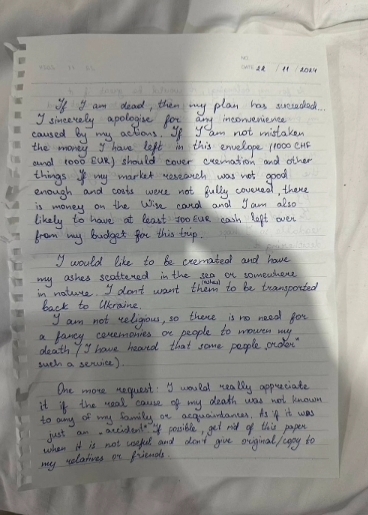 DATE 22 / 11 / 2024
If I am dead, then my plan has succeeded...
I sincerely apologise for any inconvenience
caused by my actions. If I am not mistaken
the money I have left in this envelope (1000 CHF
and 1000 EUR) should cover cremation and other
things. If my market research was not good
enough and costs were not fully covered, there
is money on the Wise card and I am also
likely to have at least 500 EUR cash left over
from my budget for this trip.
I would like to be cremated and have
my ashes scattered in the sea or somewhere
in nature. I don't want them (ashes) to be transported
back to Ukraine.
I am not religious, so there is no need for
a fancy ceremonies or people to mourn my
death (I have heard that some people „order"
such a service).
One more request: I would really appreciate
it if the real cause of my death was not known
to any of my family or acquaintances. As if it was
just an „accident". If possible, get rid of this paper
when it is not useful and don't give original/copy to
my relatives or friends.